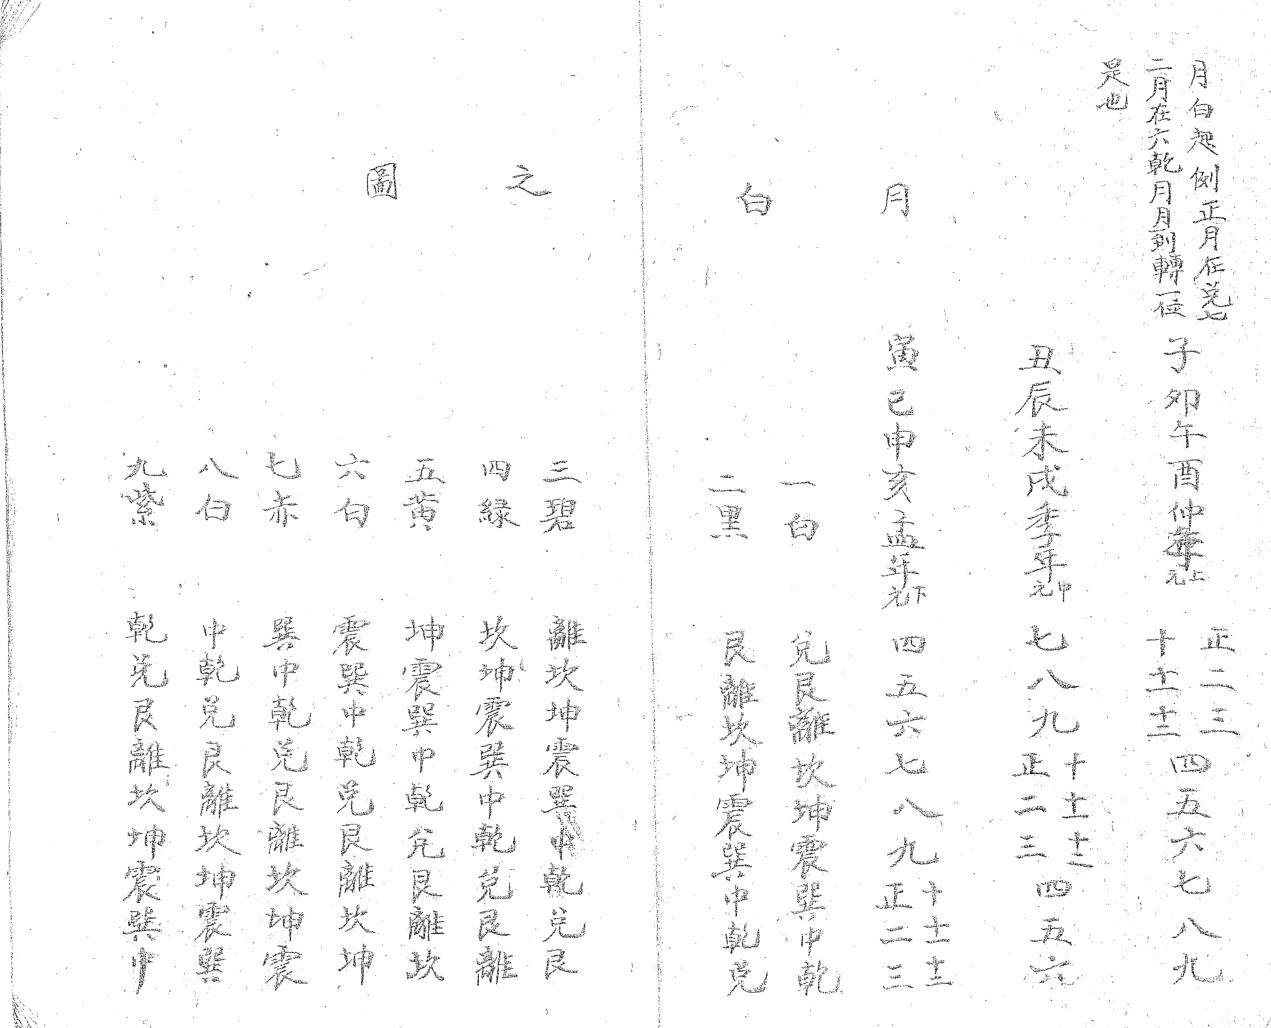 月白起例正月在兌七
二月在六乾月月到轉一位
是也
月
白
之
圖
子卯午酉仲年上元
正二三
十十一十二
四五六七八九
丑辰未戌季年中元
七八九
十十一十二
正二三
四五六
寅巳申亥孟年下元
四五六七八九
十十一十二
正二三
一白 兌艮離坎坤震巽中乾
二黑 艮離坎坤震巽中乾兌
三碧 離坎坤震巽中乾兌艮
四緑 坎坤震巽中乾兌艮離
五黄 坤震巽中乾兌艮離坎
六白 震巽中乾兌艮離坎坤
七赤 巽中乾兌艮離坎坤震
八白 中乾兌艮離坎坤震巽
九紫 乾兌艮離坎坤震巽中